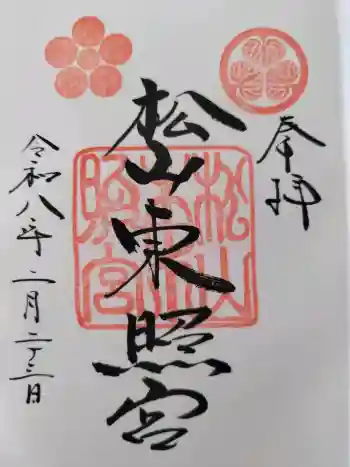 奉拝
松山東照宮
令和八年二月二十三日
松山東照宮